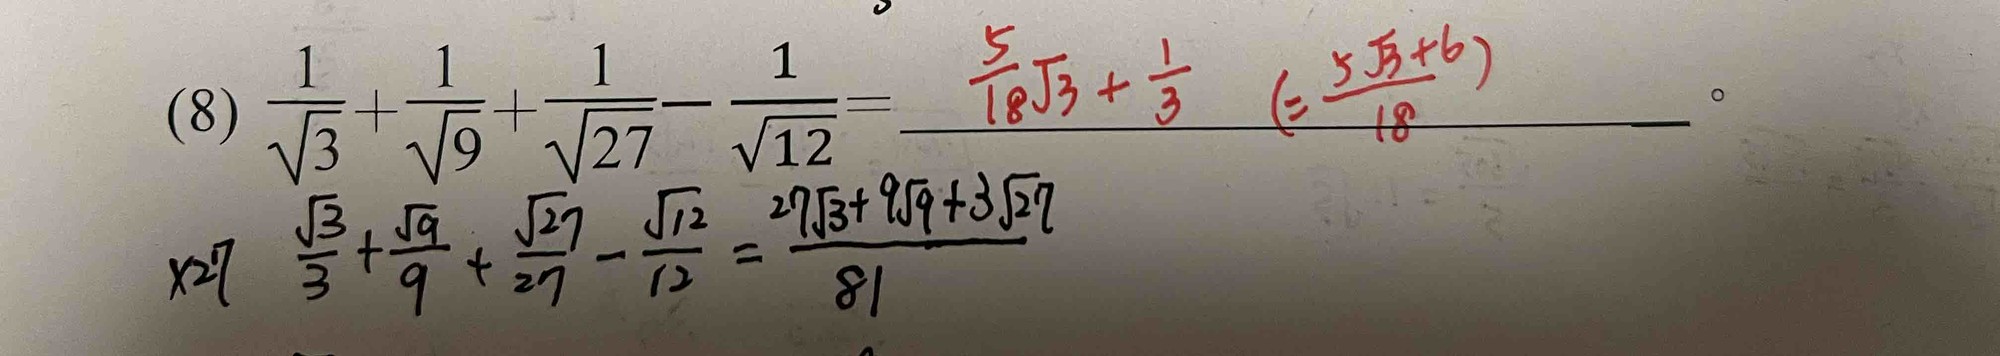 (8) 1/√3 + 1/√9 + 1/√27 − 1/√12 = 5/18 √3 + 1/3 (= 5√3+6/18) 。
×27 √3/3 + √9/9 + √27/27 − √12/12 = 27√3+9√9+3√27/81